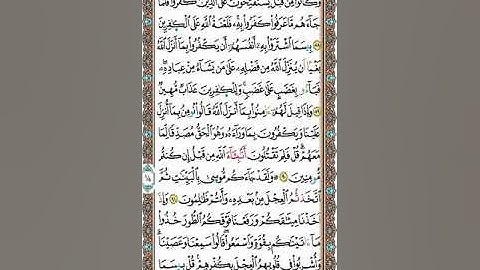 وَكَانُواْ مِن قَبْلُ يَسْتَفْتِحُونَ عَلَى اَلذِينَ كَفَرُواْ فَلَمَّا
جَآءَهُم مَّا عَرَفُواْ كَفَرُواْ بِهِۦ فَلَعْنَةُ اُللَّهِ عَلَى اَلْكٰفِرِينَ
٨٨ بِيسَمَا اَشْتَرَوْاْ بِهِۦٓ أَنفُسَهُمُۥٓ أَنْ يَّكْفُرُواْ بِمَآ أَنزَلَ اَللَّهُ
بَغْياً اَنْ يُّنَزِّلَ اَللَّهُ مِن فَضْلِهِۦ عَلَىٰ مَنْ يَّشَآءُ مِنْ عِبَادِهِۦ
فَبَآءُو بِغَضَبٍ عَلَىٰ غَضَبٍ وَلِلْكٰفِرِينَ عَذَابٌ مُّهِينٌ
٨٩ وَإِذَا قِيلَ لَهُمُۥٓ ءَامِنُواْ بِمَآ أَنزَلَ اَللَّهُ قَالُواْ نُومِنُ بِمَآ أُنزِلَ
عَلَيْنَا وَيَكْفُرُونَ بِمَا وَرَآءَهُۥ وَهُوَ اَلْحَقُّ مُصَدِّقاً لِّمَا
مَعَهُمْ قُلْ فَلِمَ تَقْتُلُونَ أَنۢبِئَآءَ اَللَّهِ مِن قَبْلُ إِن كُنتُم
مُّومِنِينَ ٩٠ وَلَقَدْ جَآءَكُم مُّوسَىٰ بِالْبَيِّنَٰتِ ثُمَّ
اَتَّخَذتُّمُ اُلْعِجْلَ مِنۢ بَعْدِهِۦ وَأَنتُمْ ظَٰلِمُونَ ٩١ وَإِذَ
اَخَذْنَا مِيثَٰقَكُمْ وَرَفَعْنَا فَوْقَكُمُ اُلطُّورَ خُذُواْ
مَآ ءَاتَيْنَٰكُم بِقُوَّةٍ وَاسْمَعُواْ قَالُواْ سَمِعْنَا وَعَصَيْنَا
وَأُشْرِبُواْ فِے قُلُوبِهِمُ اُلْعِجْلَ بِكُفْرِهِمْ قُلْ بِيسَمَا
١٤